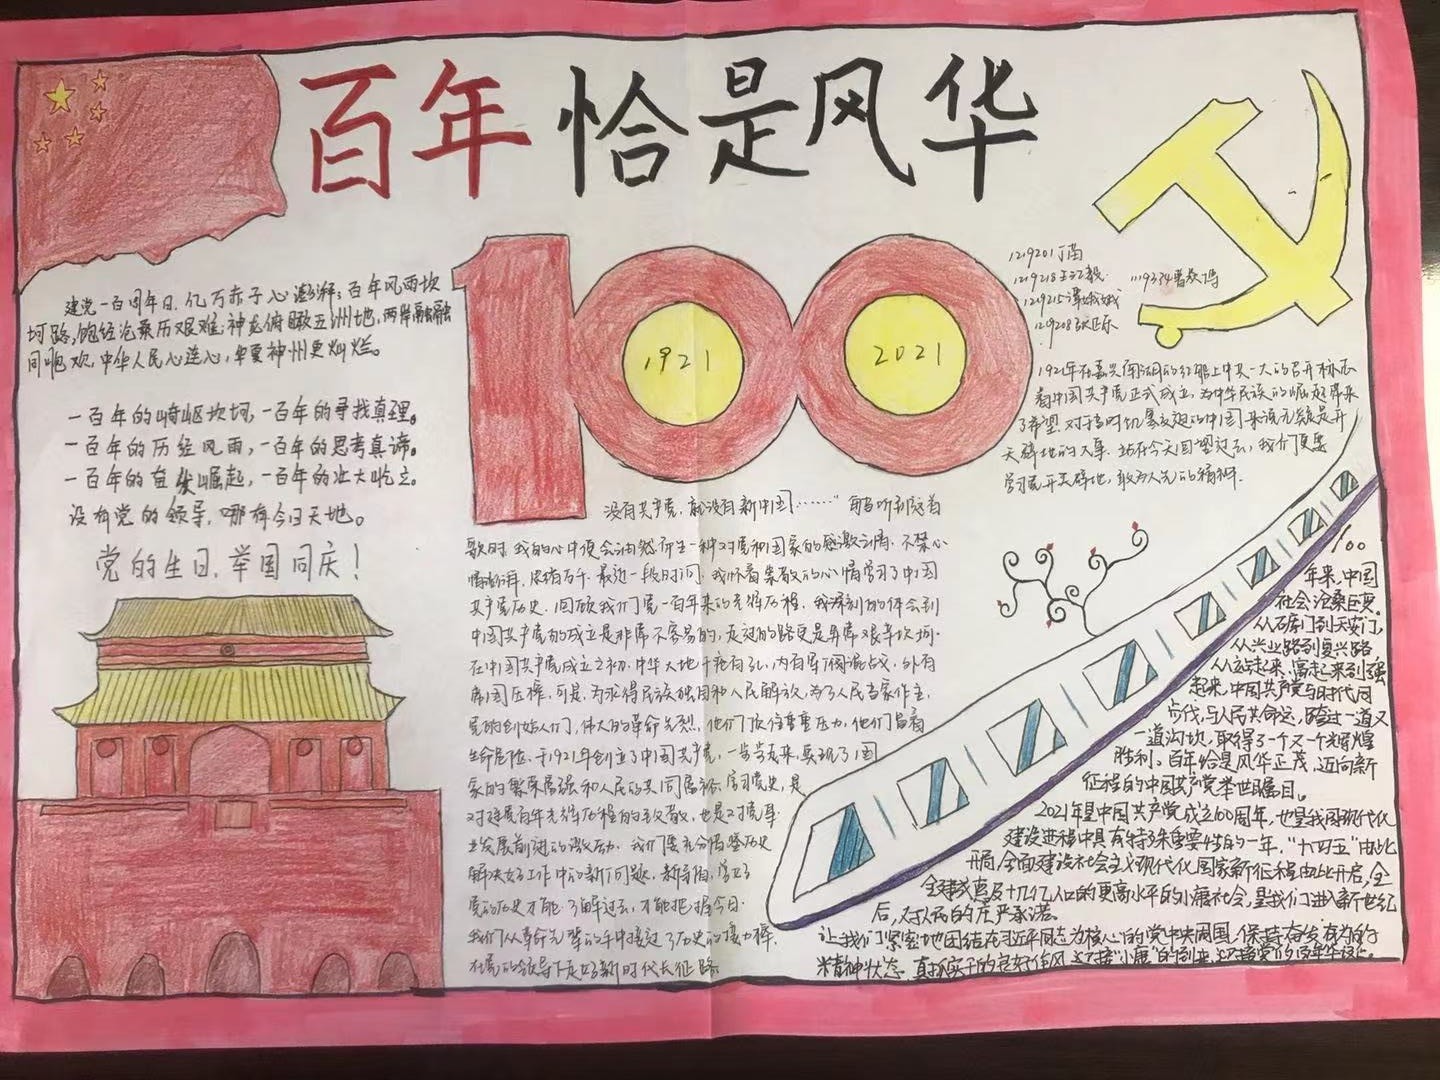 百年 恰是风华
100
1921
2021
建党一百周年日,亿万赤子心澎湃;百年风雨坎
坷路,饱经沧桑历艰难;神龙俯瞰五洲地,两岸融融
同胞欢,中华人民心连心,华夏神州更灿烂。
一百年的崎岖坎坷,一百年的寻找真理。
一百年的历经风雨,一百年的思考真谛。
一百年的奋发崛起,一百年的壮大屹立。
没有党的领导,哪有今日天地。
党的生日,举国同庆!
1219201
1219218
1219334
1219215
1219208
1921年在嘉兴南湖的红船上中共一大的召开标志
着中国共产党正式成立,为中华民族的崛起带来
了希望.对于当时饥寒交迫的中国来说无疑是开
天辟地的大事.站在今天回望过去,我们更要
学习党开天辟地,敢为人先的精神.
没有共产党,就没有新中国……” 每当听到这首
歌时 我的心中便会油然而生一种对党和国家的感激之情.不禁心
情澎湃,思绪万千.最近一段时间,我怀着崇敬的心情学习了中国
共产党历史.回顾我们党一百年来的光辉历程,我深刻的体会到
中国共产党的成立是非常不容易的,走过的路更是异常艰辛坎坷.
在中国共产党成立之初,中华大地千疮百孔,内有军阀混战,外有
帝国压榨,可是,为求得民族独立和人民解放,为了人民当家作主,
党的创始人们,伟大的革命先烈,他们顶住重重压力,他们冒着
生命危险,于1921年创立了中国共产党,一步步走来,实现了国
家的繁荣富强和人民的共同富裕.学习党史,是
对建党百年光辉历程的致敬,也是对党事
业发展前进的激励.我们要充分借鉴历史
解决好工作中的新问题,新
党的历史才能了解过去,才能把握今日.
我们从革命先辈的手中接过了历史的接力棒,
在党的领导下走好新时代长征路
100
年来,中国
社会沧桑巨变。
从石库门到天安门,
从兴业路到复兴路
从站起来、富起来到强
起来,中国共产党与时代同
步伐,与人民共命运,跨过一道又
一道沟坎,取得了一个又一个辉煌
胜利。百年恰是风华正茂,迈向新
征程的中国共产党举世瞩目。
2021年是中国共产党成立100周年,也是我国现代化
建设进程中具有特殊重要性的一年,“十四五”由此
开局,全面建设社会主义现代化国家新征程由此开启,全
全建成惠及十几亿人口的更高水平的小康社会,是我们进入新世纪
后,对人民的庄严承诺。
让我们紧密地团结在习近平同志为核心的党中央周围,保持奋发有为的
精神状态,真抓实干的良好作风